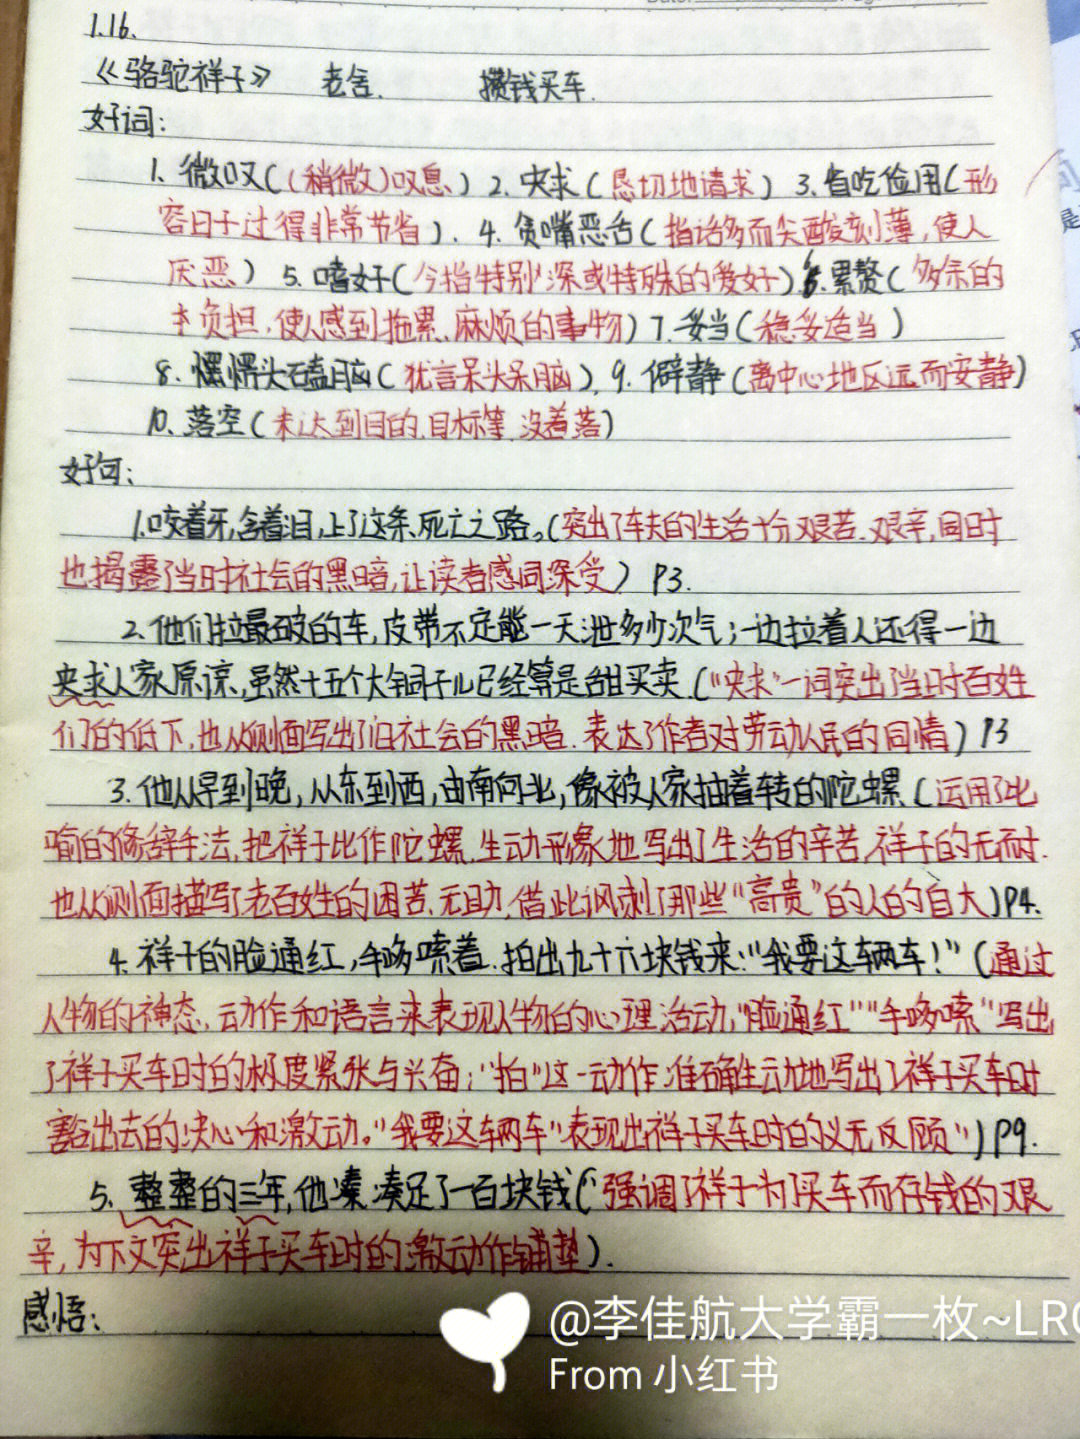 1.16.
《骆驼祥子》 老舍. 攒钱买车.
好词:
1. 微叹((稍微)叹息.) 2. 央求(恳切地请求) 3. 省吃俭用(形
容日子过得非常节省). 4. 贫嘴恶舌(指话多而尖酸刻薄,使人
厌恶) 5. 嗜好(今指特别深或特殊的爱好) 6. 累赘(多余的
负担,使人感到拖累、麻烦的事物) 7. 妥当(稳妥适当)
8. 愣愣头磕脑(犹言呆头呆脑). 9. 僻静(离中心地区远而安静)
10. 落空(未达到目的.目标等.没着落)
好句:
1.咬着牙,含着泪,上了这条死亡之路。(突出了车夫的生活十分艰苦.艰辛,同时
也揭露了当时社会的黑暗,让读者感同深受) P3.
2.他们拉最破的车,皮带不定能一天泄多少次气;一边拉着人还得一边
央求人家原谅,虽然十五个大铜子儿已经算是甜买卖.("央求"一词突出了当时百姓
们的低下,也从侧面写出了旧社会的黑暗.表达了作者对劳动人民的同情) P3
3.他从早到晚,从东到西,由南向北,像被人家抽着转的陀螺.(运用了比
喻的修辞手法,把祥子比作陀螺.生动形象地写出了生活的辛苦,祥子的无奈.
也从侧面描写了老百姓的困苦.无助.借此讽刺了那些"高贵"的人的自大)P4.
4.祥子的脸通红,手哆嗦着.拍出九十六块钱来:"我要这辆车!"(通过
人物的神态、动作和语言来表现人物的心理活动,"脸通红""手哆嗦"写出
了祥子买车时的极度紧张与兴奋;"拍"这一动作准确生动地写出了祥子买车时
豁出去的决心和激动。"我要这辆车"表现出祥子买车时的义无反顾") P9.
5.整整的三年,他凑凑足了一百块钱("强调了祥子为了买车而存钱的艰
辛,为下文突出祥子买车时的激动作铺垫).
感悟:
@李佳航大学霸一枚~LRC
From 小红书